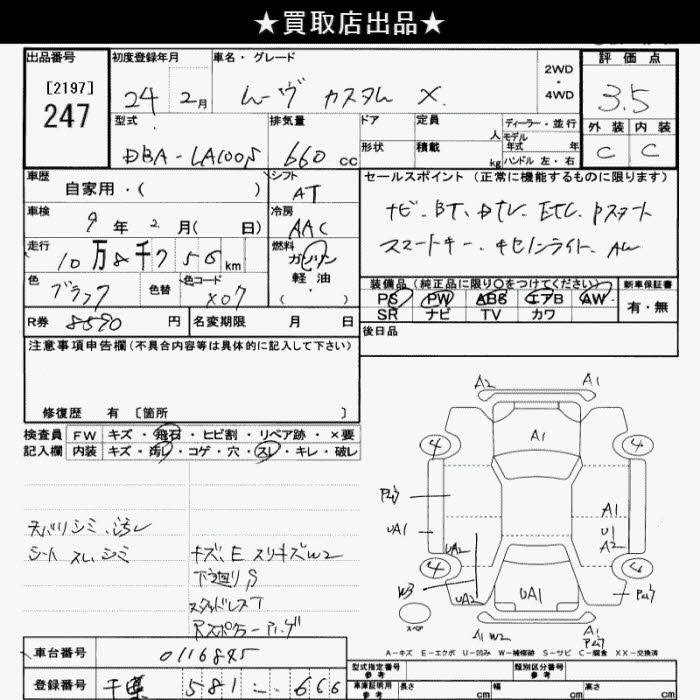 ★買取店出品★
出品番号 初度登録年月 車名・グレード 2WD・4WD 評価点
[2197]
247
24 2月 ムーヴ カスタム X 3.5
型式 排気量 ドア 定員 人 ディーラー・並行 外装 内装
モデル年式 年
DBA-LA100S 660 cc 形状 積載 kg ハンドル 左・右 C C
車歴 自家用・( ) シフト AT
セールスポイント(正常に機能するものに限ります)
車検 9年2月( 日) 冷房 AAC
ナビ、BT、DTV、ETC、Pスタート
スマートキー、キセノンライト、AW
走行 10万8千7 56 km 燃料 ガソリン 軽油・( )
色 ブラック 色替 色コード X07
装備品(純正品に限り○をつけてください) 新車保証書
PS PW ABS エアB AW 有・無
SR ナビ TV カワ
R券 8590円 名変期限 月 日
後日品
注意事項申告欄(不具合内容等は具体的に記入して下さい)
修復歴 有 〔箇所 〕
検査員 FW キズ・飛石・ヒビ割・リペア跡・×要
記入欄 内装 キズ・汚レ・コゲ・穴・スレ・キレ・破レ
A2 A1
4 A1 4
Pｺｲｹ A1
UA1 U1
UA2 A2
4 4
W3 UA2 UA1 Pｺｲｹ
スペア A1 W2 A1
Pｺｲｹ
シミ、汚レ
シート スレ、シミ
キズ、E スリキズW2
下廻りS
スタッドレスT
Rスポイラー
A-キズ E-エクボ U-凹み W-補修跡 S-サビ C-腐食 XX-交換済
車台番号 0116845
登録番号 千葉 581 666
型式指定番号 参考 類別区分番号 参考
車庫証明用 参考 長さ cm 幅 cm 高さ cm